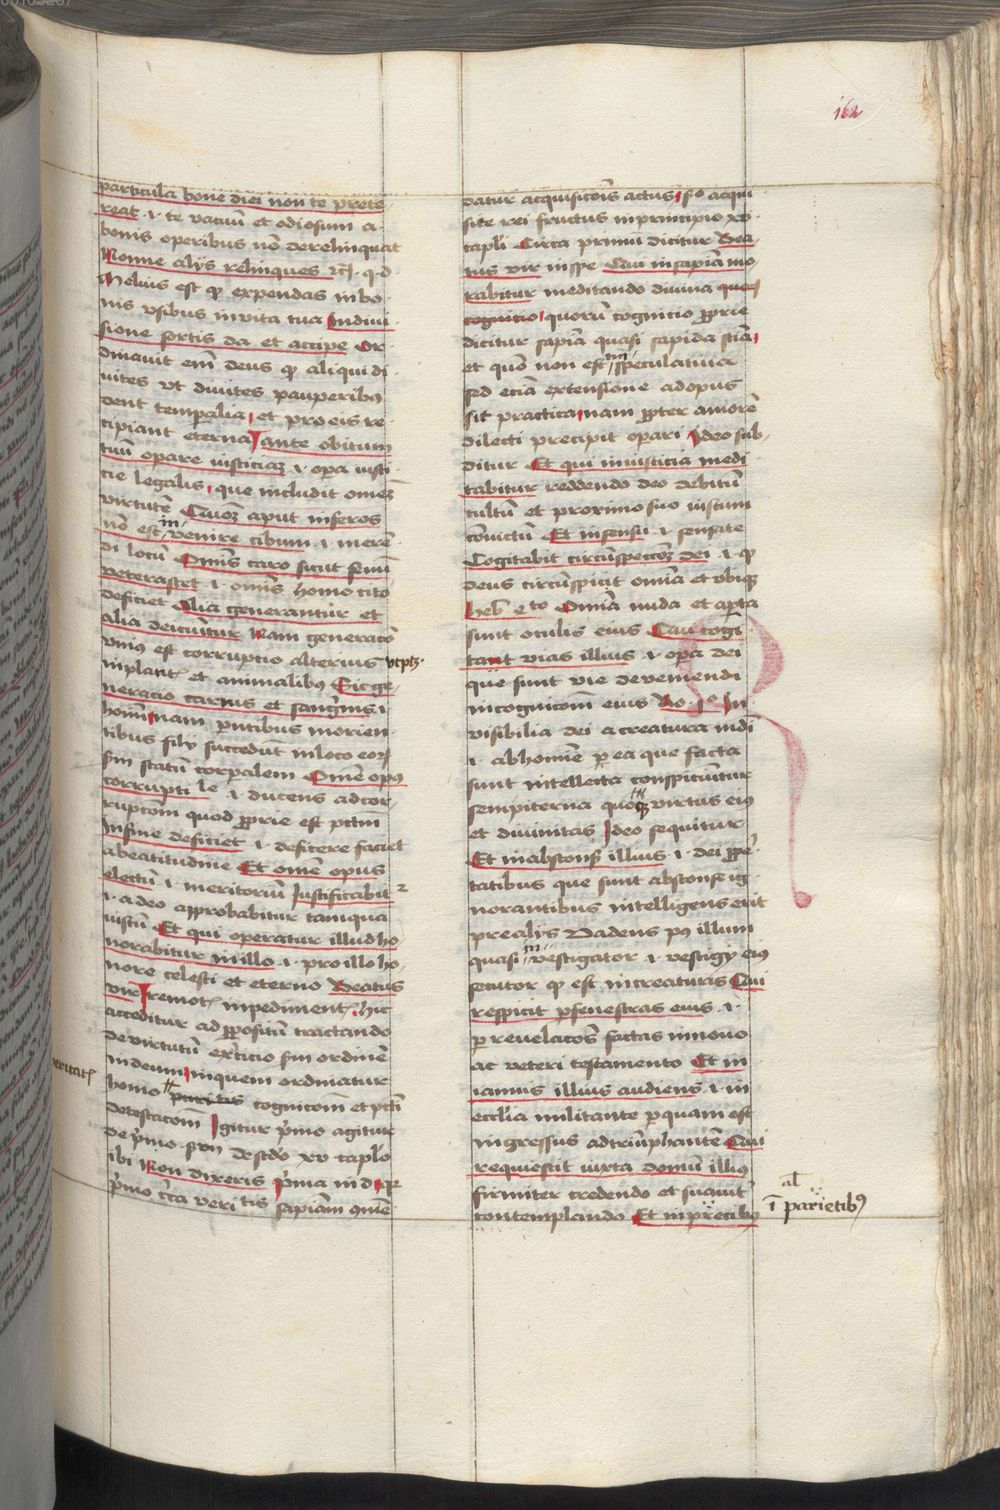 162
particula bone diei non te prete
reat .i. te vacuū et odiosum a
bonis operibus nō derelinquat
Nonne alijs relinques rc̄ꝭ. q.d.
Melius est ꝙ expendas in bo
nis vsibus in vita tua Indiui
sione sortis da et accipe Or
dinauit em̄ deus ꝙ aliqui di
uites vt diuites pauperibꝰ
dent temporalia et pro eis re
cipiant eterna ante obitum
tuū opare iusticiaꝫ .i. opa iusti
cie legalis que includit omeꝫ
virtutē Quoꝫ aput inferos
nō est in venire cibum .i. merē
di locū Omīs caro sicut fenū
veterascet .i. omīs homo cito
deficiet Alia generantur et
alia deiciūtur Nam generacō
vniꝰ est corruptio alterius vt ptꝫ.
in plantꝭ et animalibꝰ Sic ge
neracio carnis et sang̃nis .i.
hoīm nam pntibus morien
tibus filij succedūt in loco eoꝝ
scdm statū corpalem Omē opꝰ
corruptile .i. ducens ad cor
ruptōm quod ꝓprie est pctm̄
in fine deficiet .i. deficere faciet
a beatitudine Et omē opus
electū .i. meritoriū Iustificabitᷣ
.i. a deo approbabitur tamqua
iustū Et qui operatur illud ho
norabitur in illo .i. pro illo ho
nore celesti et eterno Beatus
vir remotꝭ inpedimentꝭ hic
acceditur ad ꝓpositū tractando
de virtutū exercicio scdm ordinē
in deum in quem ordinatur
homo veritatꝭ cognicōm et pcti
detestacōm Igitur pͥmo agitur
de pͥmo scdo de scdo xv caplo
ibi Non dixeris Prima in d qꝛ
pͥmo circa veritatis sapiam ꝓmē
datur acquisicōis actus so acqui
site rei fructus in principio xv
capli Circa primū dicitur Bea
tus vir in spe Qui in sapia mo
rabitur meditando diuina
quorū cognicio ꝓprie
dicitur sapia quasi sapida scia
et quō non est in speculatiua
sed ecia extensione ad opus
sit practica nam ꝓpter amorē
dilecti precipit opari Ideo sub
ditur Et qui in iusticia medi
tabitur reddendo deo debitū
cultū et proximo suo iustum
cōuictū Et in sensu .i. sensate
Cogitabit circūspectōꝫ dei .i. ꝙ
deus circūspicit omīa et vbiqꝫ
heb eto Omīa nuda et apta
sunt oculis eius Qui cogi
tant vias illius .i. opa dei
que sunt vie deueniendi
in cognicōm eius Ro. jo In
visibilia dei a creatura mūdi
.i. ab homīe p ea que facta
sunt intellecta conspiciūtur
sempiterna quoqꝫ virtus eiꝰ
et diuinitas Ideo sequitur
Et in abscons illius .i. dei ꝓpe
tatibus que sunt absconse ig
norantibus intelligens erit
pre alijs Vadens pꝰ illum
quasi in vestigator .i. vestigij eiꝰ
secutor ꝙ est in creaturis Qui
respicit p fenestras eius .i.
p reuelacōes factas in nouo
ac veteri testamento Et in
ianuis illius audiens .i. in
ecclia militante p quam est
ingressus ad triūphantē Qui
requiescit iuxta domū illiꝰ
firmiter credendo et suauitᷣ
contemplando Et in precibꝰ
al
ī parietibꝰ